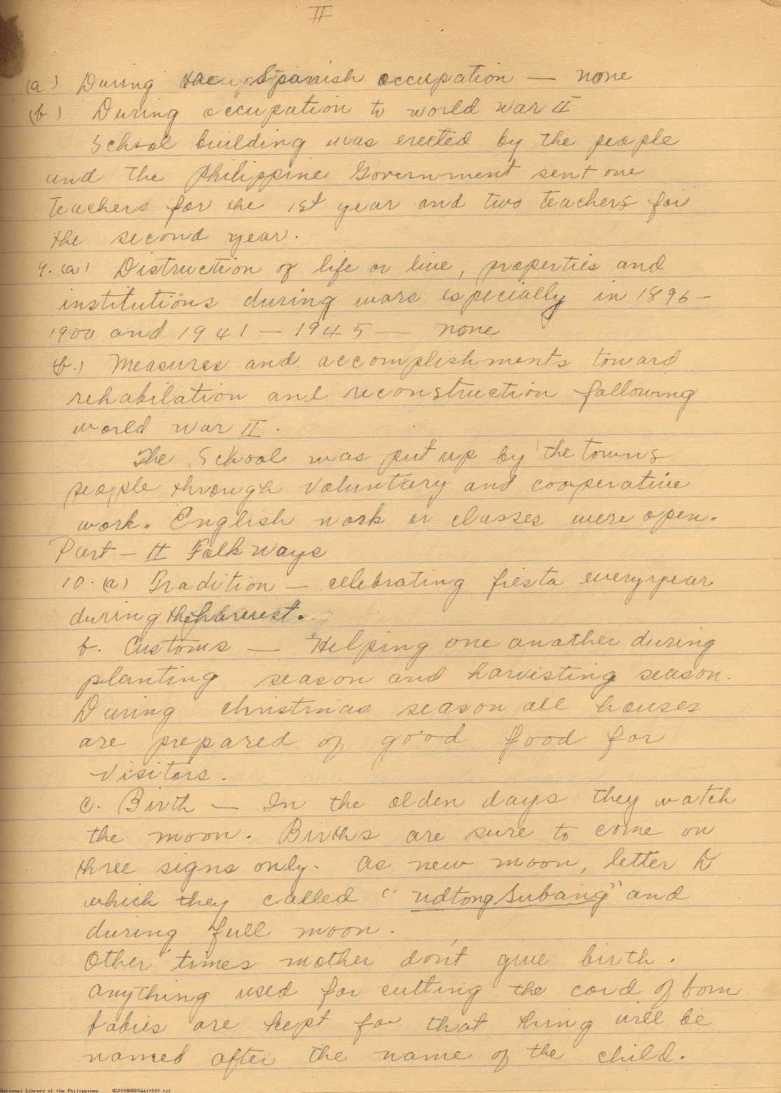 II
(a) During the Spanish occupation — none
(b) During occupation to world war II
School building was erected by the people
and the Philippine Government sent one
teachers for the 1st year and two teachers for
the second year.
9. (a) Distruction of life or live, properties and
institutions during wars especially in 1896 –
1900 and 1941 – 1945 — none
b.) Measures and accomplishments toward
rehabilation and reconstruction following
world war II.
The School was put up by the towns
people through voluntary and cooperative
work. English work or classes were open.
Part – II Folkways
10. (a) Tradition – celebrating fiesta everyyear
during the harvest.
b. Customs — Helping one another during
planting season and harvisting season.
During christmas season all houses
are prepared of good food for
visitors.
c. Birth – In the olden days they watch
the moon. Births are sure to come on
three signs only. As new moon, letter
which they called "udtong Subang" and
during full moon.
Other times mother don't give birth.
anything used for cutting the cord of born
babies are kept for that thing will be
named after the name of the child.
National Library of the Philippines